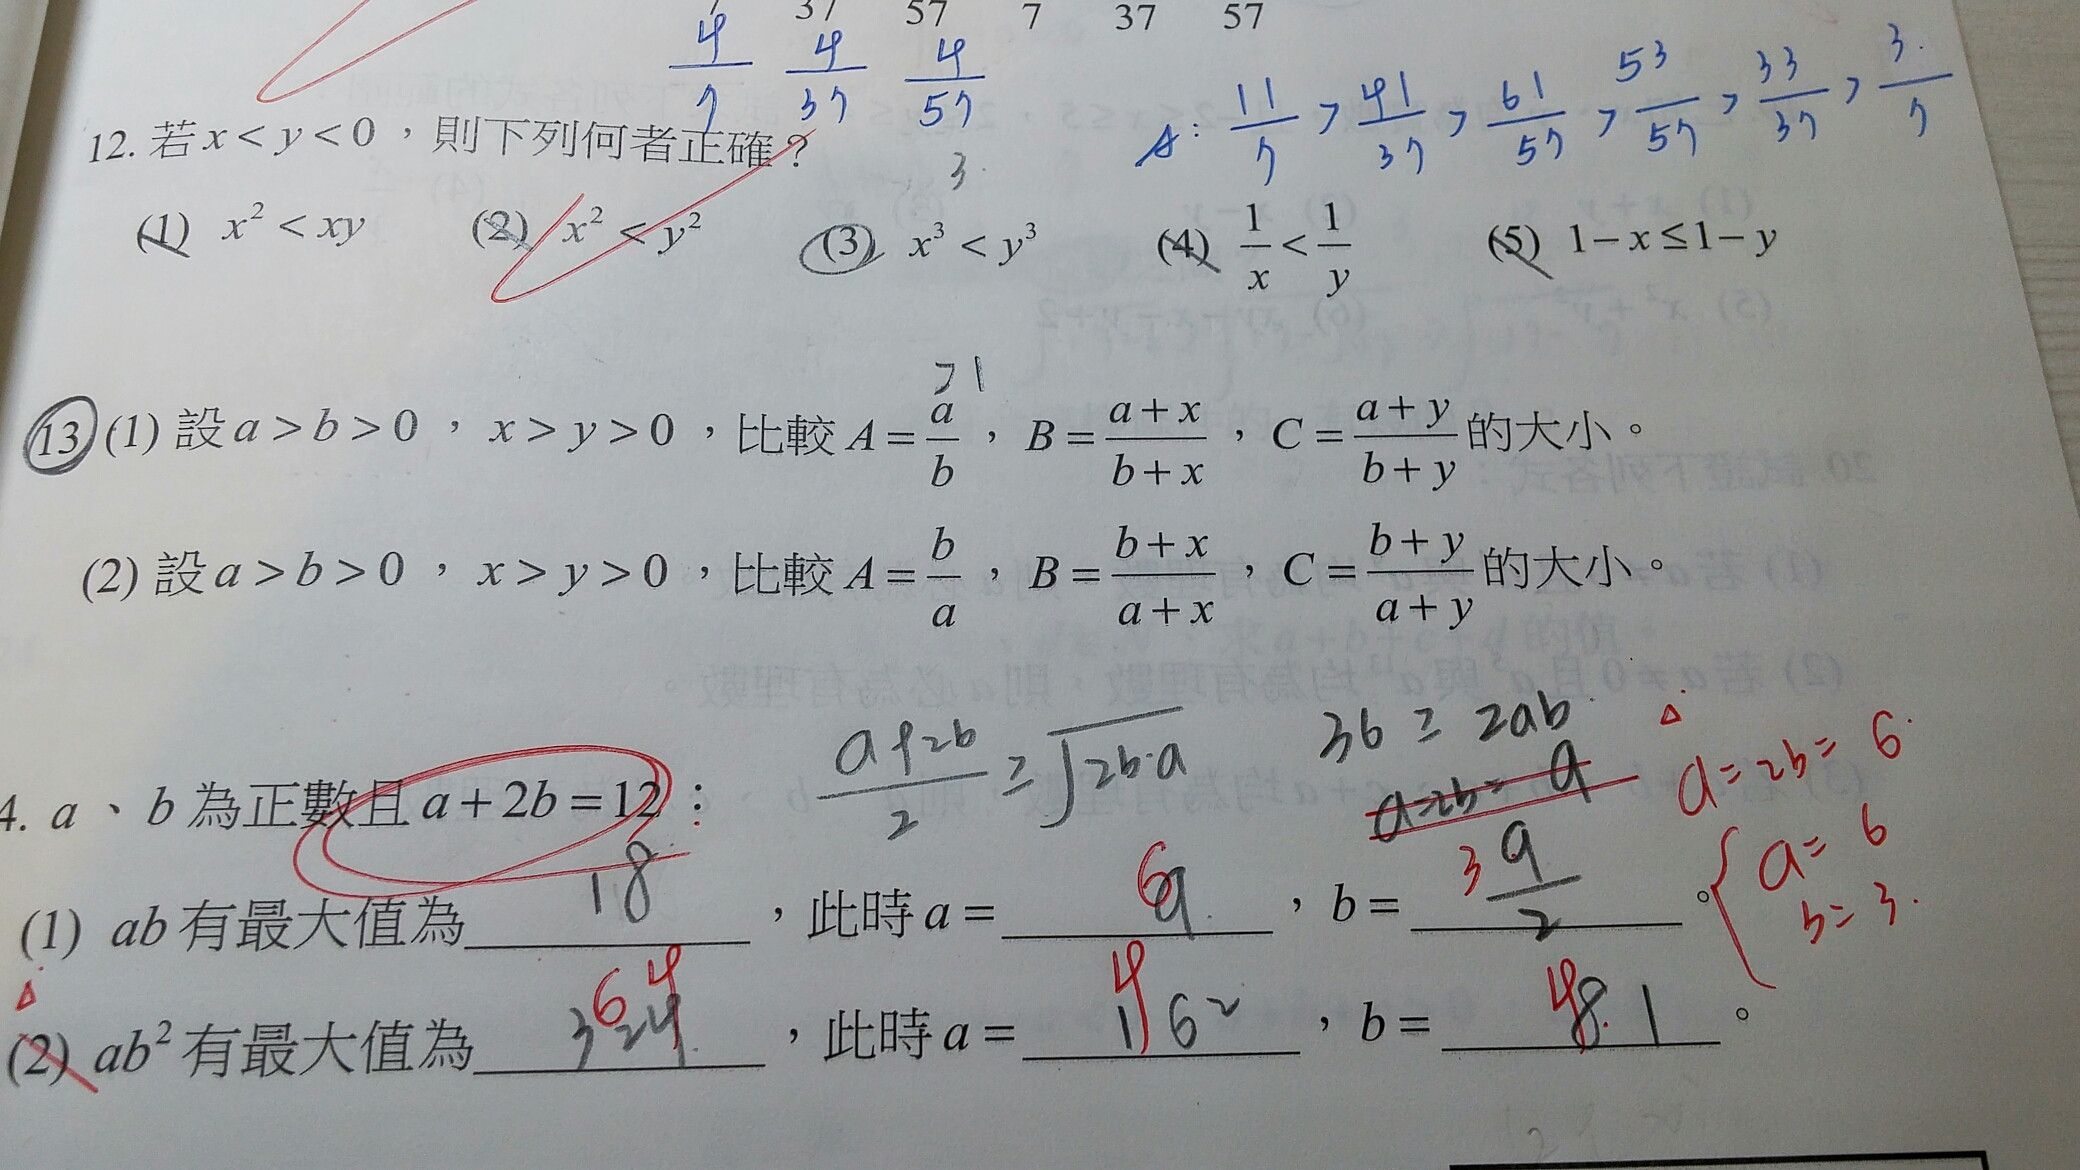 37 57 7 37 57
4/7 4/37 4/57
A: 11/7 > 41/37 > 61/57 > 53/57 > 33/37 > 3/7
12. 若 x < y < 0 ，則下列何者正確？
3.
(1) x² < xy (2) x² < y² (3) x³ < y³ (4) 1/x < 1/y (5) 1 − x ≤ 1 − y
>1
13 (1) 設 a > b > 0 ， x > y > 0 ，比較 A = a/b ， B = (a + x)/(b + x) ， C = (a + y)/(b + y) 的大小。
(2) 設 a > b > 0 ， x > y > 0 ，比較 A = b/a ， B = (b + x)/(a + x) ， C = (b + y)/(a + y) 的大小。
(a+2b)/2 ≥ √(2b·a) 36 ≥ 2ab
a=2b= 9 a=2b= 6.
4. a 、 b 為正數且 a + 2b = 12 ：
a= 6
b= 3.
(1) ab 有最大值為 18 ，此時 a = 6 9. ， b = 3 9/2 。
(2) ab² 有最大值為 64 324. ，此時 a = 4 162 ， b = 4. 81 。